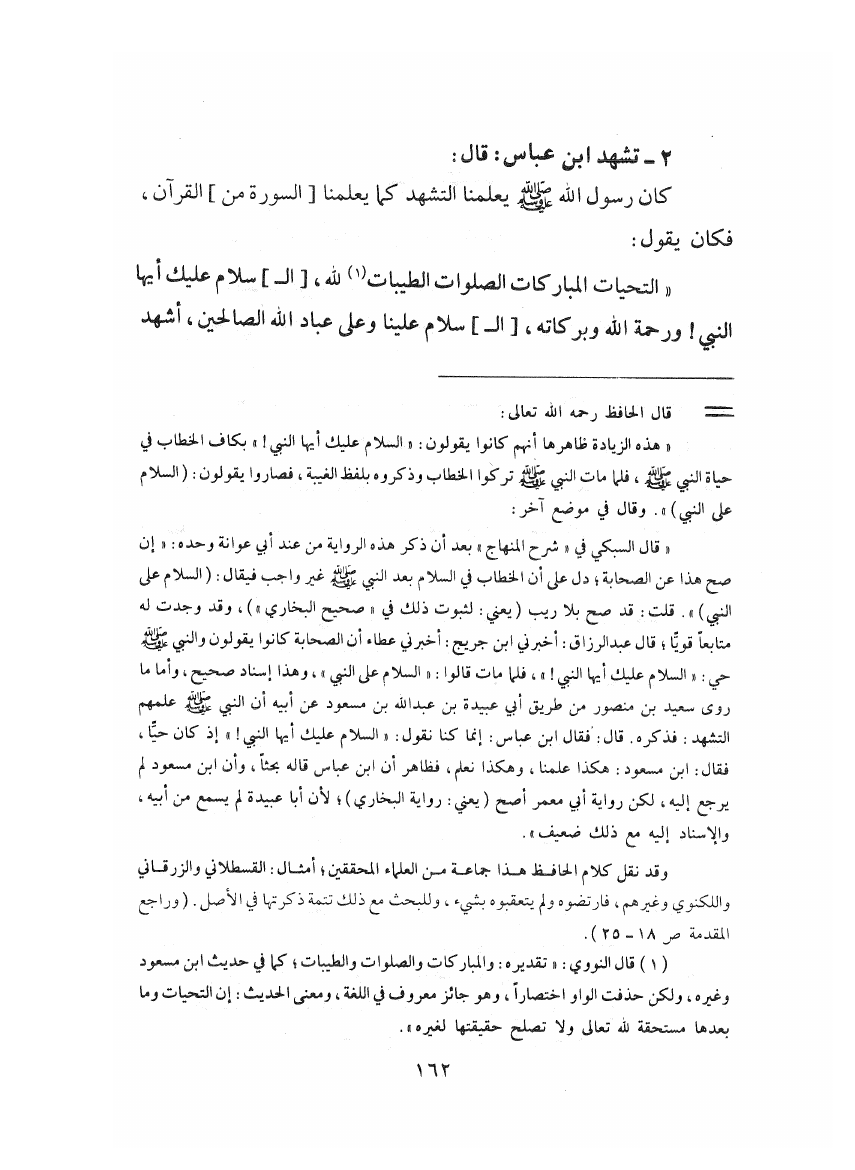 ٢ ـ تشهد ابن عباس: قال:
كان رسول الله ﷺ يعلمنا التشهد كما يعلمنا [ السورة من ] القرآن ،
فكان يقول:
« التحيات المباركات الصلوات الطيبات(١) لله ، [ الـ ] سلام عليك أيها
النبي ! ورحمة الله وبركاته ، [ الـ ] سلام علينا وعلى عباد الله الصالحين ، أشهد
= قال الحافظ رحمه الله تعالى:
« هذه الزيادة ظاهرها أنهم كانوا يقولون: « السلام عليك أيها النبي ! » بكاف الخطاب في
حياة النبي ﷺ ، فلما مات النبي ﷺ تركوا الخطاب وذكروه بلفظ الغيبة ، فصاروا يقولون: (السلام
على النبي)». وقال في موضع آخر:
« قال السبكي في « شرح المنهاج » بعد أن ذكر هذه الرواية من عند أبي عوانة وحده: « إن
صح هذا عن الصحابة ؛ دل على أن الخطاب في السلام بعد النبي ﷺ غير واجب فيقال: (السلام على
النبي)». قلت: قد صح بلا ريب (يعني: لثبوت ذلك في « صحيح البخاري »)، وقد وجدت له
متابعاً قويًّا ؛ قال عبدالرزاق: أخبرني ابن جريج: أخبرني عطاء أن الصحابة كانوا يقولون والنبي ﷺ
حي: « السلام عليك أيها النبي ! » ، فلما مات قالوا: « السلام على النبي » ، وهذا إسناد صحيح ، وأما ما
روى سعيد بن منصور من طريق أبي عبيدة بن عبدالله بن مسعود عن أبيه أن النبي ﷺ علمهم
التشهد: فذكره. قال: فقال ابن عباس: إنما كنا نقول: « السلام عليك أيها النبي ! » إذ كان حيًّا ،
فقال: ابن مسعود: هكذا علمنا ، وهكذا نعلم ، فظاهر أن ابن عباس قاله بحثاً ، وأن ابن مسعود لم
يرجع إليه ، لكن رواية أبي معمر أصح (يعني: رواية البخاري)؛ لأن أبا عبيدة لم يسمع من أبيه ،
والإسناد إليه مع ذلك ضعيف».
وقد نقل كلام الحافظ هذا جماعة من العلماء المحققين ؛ أمثال: القسطلاني والزرقاني
واللكنوي وغيرهم ، فارتضوه ولم يتعقبوه بشيء ، وللبحث مع ذلك تتمة ذكرتها في الأصل. (وراجع
المقدمة ص ١٨ - ٢٥).
(١) قال النووي: « تقديره: والمباركات والصلوات والطيبات ؛ كما في حديث ابن مسعود
وغيره ، ولكن حذفت الواو اختصاراً ، وهو جائز معروف في اللغة ، ومعنى الحديث: إن التحيات وما
بعدها مستحقة لله تعالى ولا تصلح حقيقتها لغيره».
١٦٢